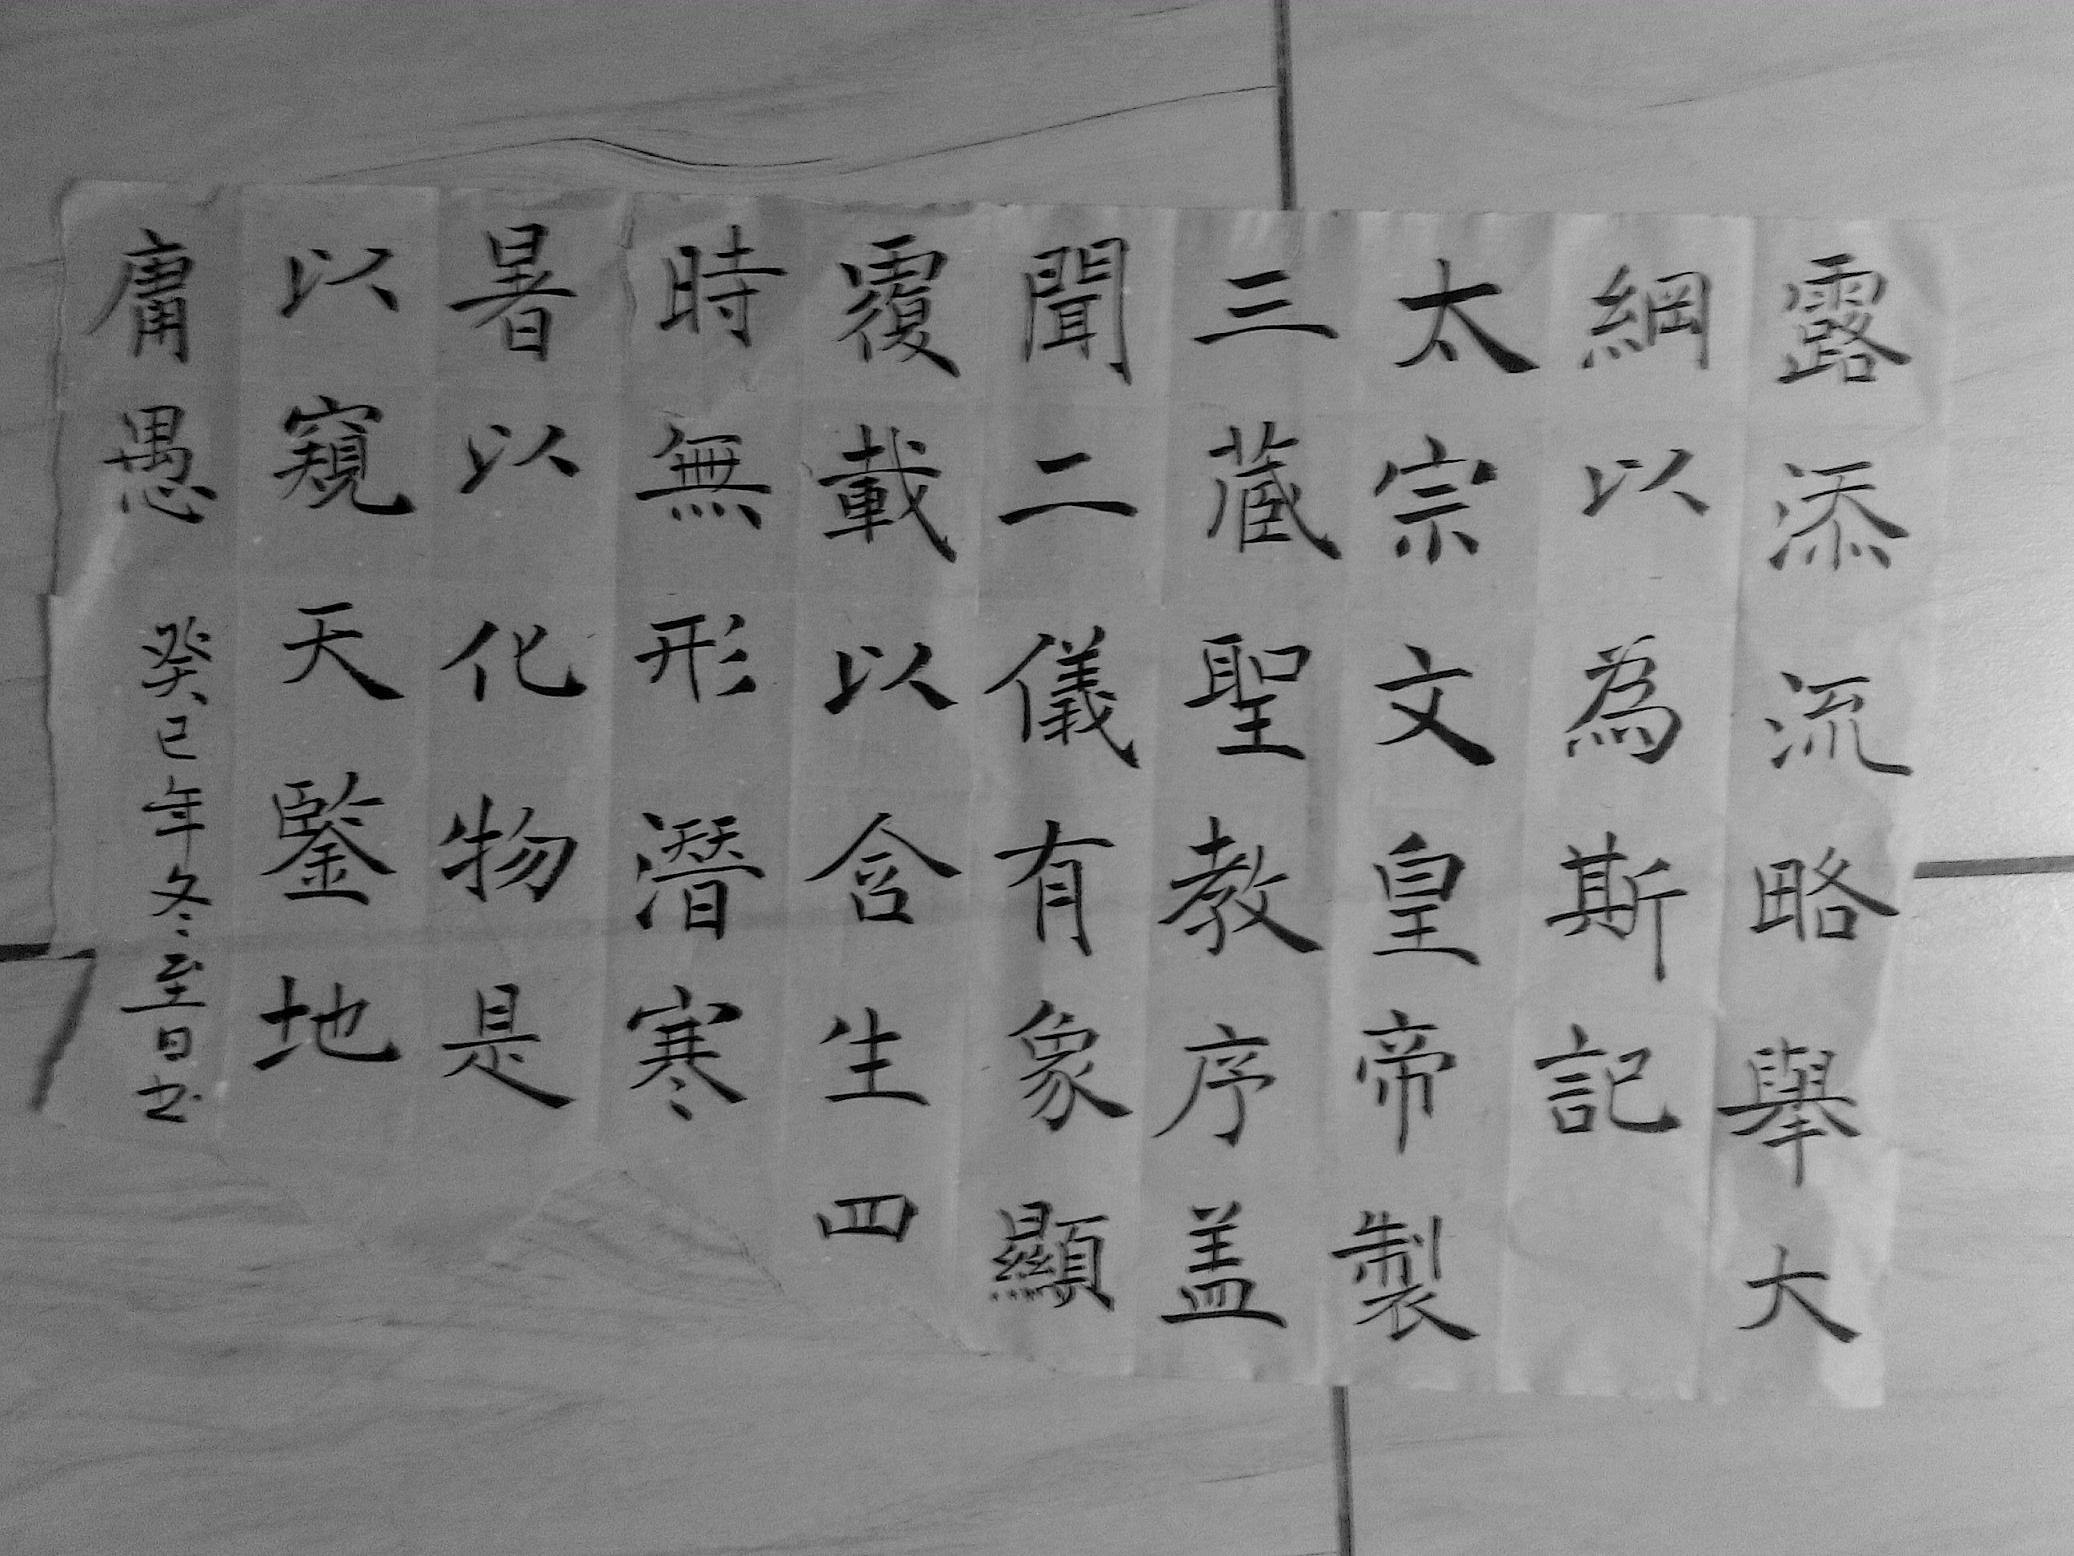 露添流略舉大
綱以為斯記
太宗文皇帝製
三蔵聖教序盖
聞二儀有象顯
覆載以含生四
時無形潛寒
暑以化物是
以窺天鑒地
庸愚
癸巳年冬至日书